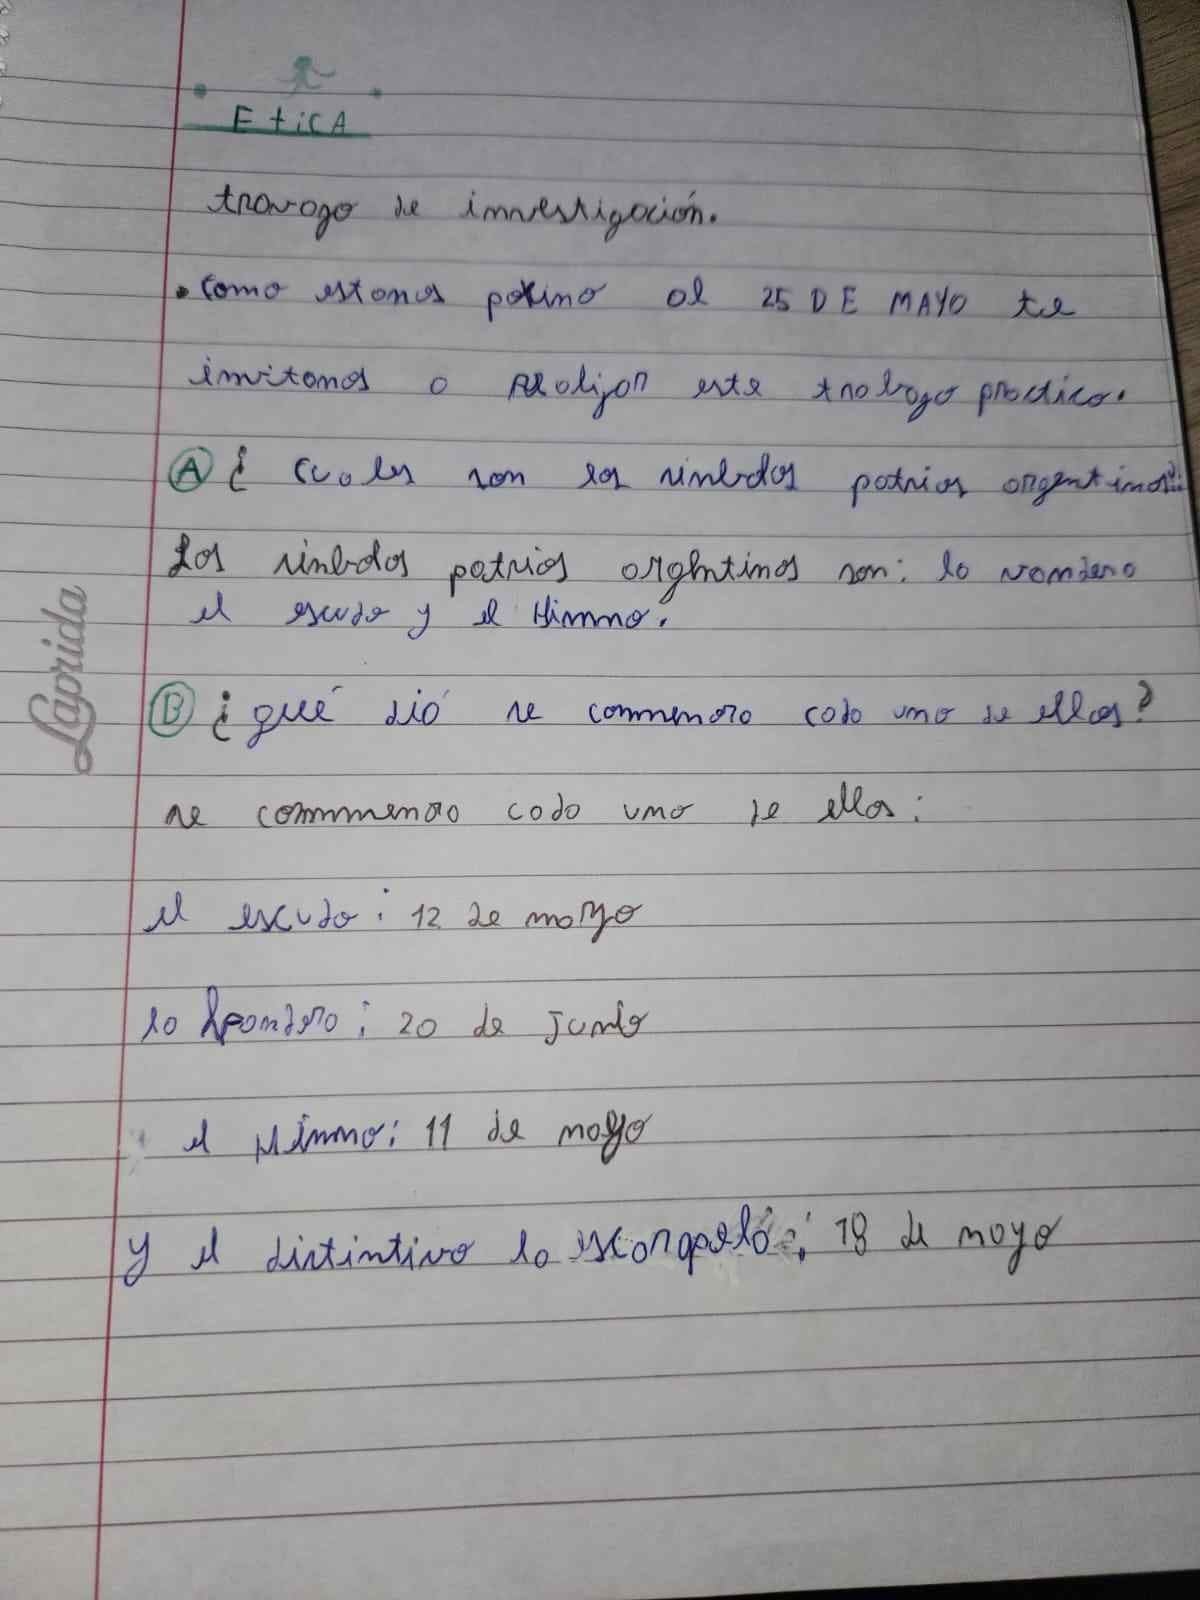 EticA
travago de investigación.
• Como estanos poximo al 25 DE MAYO te
invitamos a realizar este trabago practico.
A ¿ Cuales son los simbolos patrios argentinos?
Los simbolos patrios argentinos son: la vandera
el escudo y el Himno.
B ¿ qué dió se commemora cada uno de ellos?
se commemora cada uno de ellos:
el escudo: 12 de mayo
la bandera: 20 de junio
el Himno: 11 de mayo
y el distintivo la escarapela: 18 de mayo
Laprida